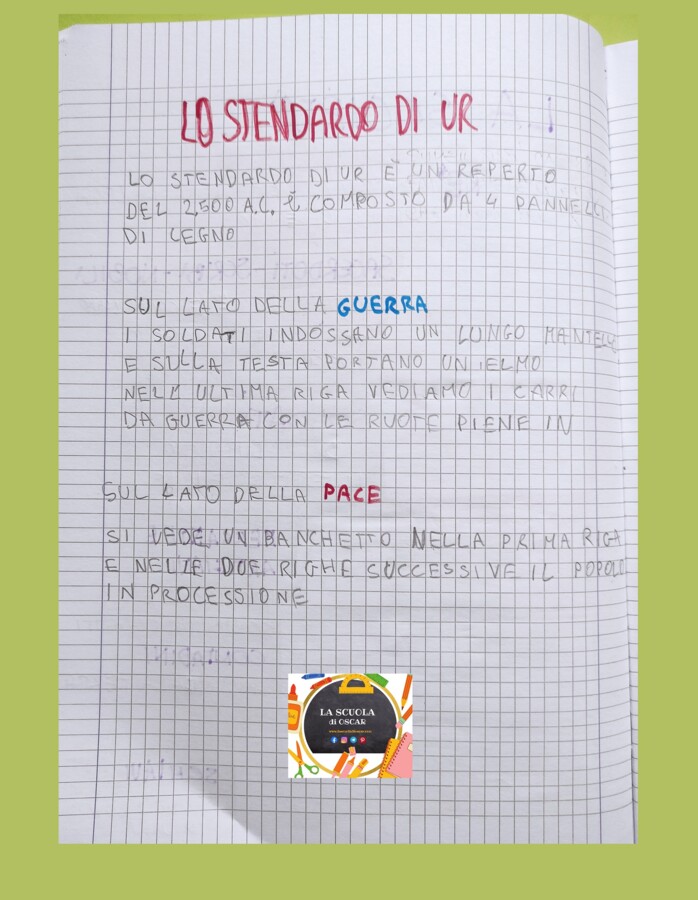 LO STENDARDO DI UR
LO STENDARDO DI UR È UN REPERTO
DEL 2.500 A.C. È COMPOSTO DA 4 PANNELLI
DI LEGNO
SUL LATO DELLA GUERRA
I SOLDATI INDOSSANO UN LUNGO MANTELLO
E SULLA TESTA PORTANO UN ELMO
NELL'ULTIMA RIGA VEDIAMO I CARRI
DA GUERRA CON LE RUOTE PIENE IN
SUL LATO DELLA PACE
SI VEDE UN BANCHETTO NELLA PRIMA RIGA
E NELLE DUE RIGHE SUCCESSIVE IL POPOLO
IN PROCESSIONE
LA SCUOLA
di OSCAR